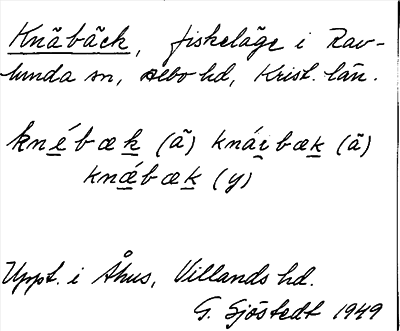 Knäbäck, fiskeläge i Rav-
lunda sn, Albo hd, Krist. län.
knébæk (ä) knáibæk (ä)
knǽbæk (y)
Uppt. i Åhus, Villands hd.
G. Sjöstedt 1949